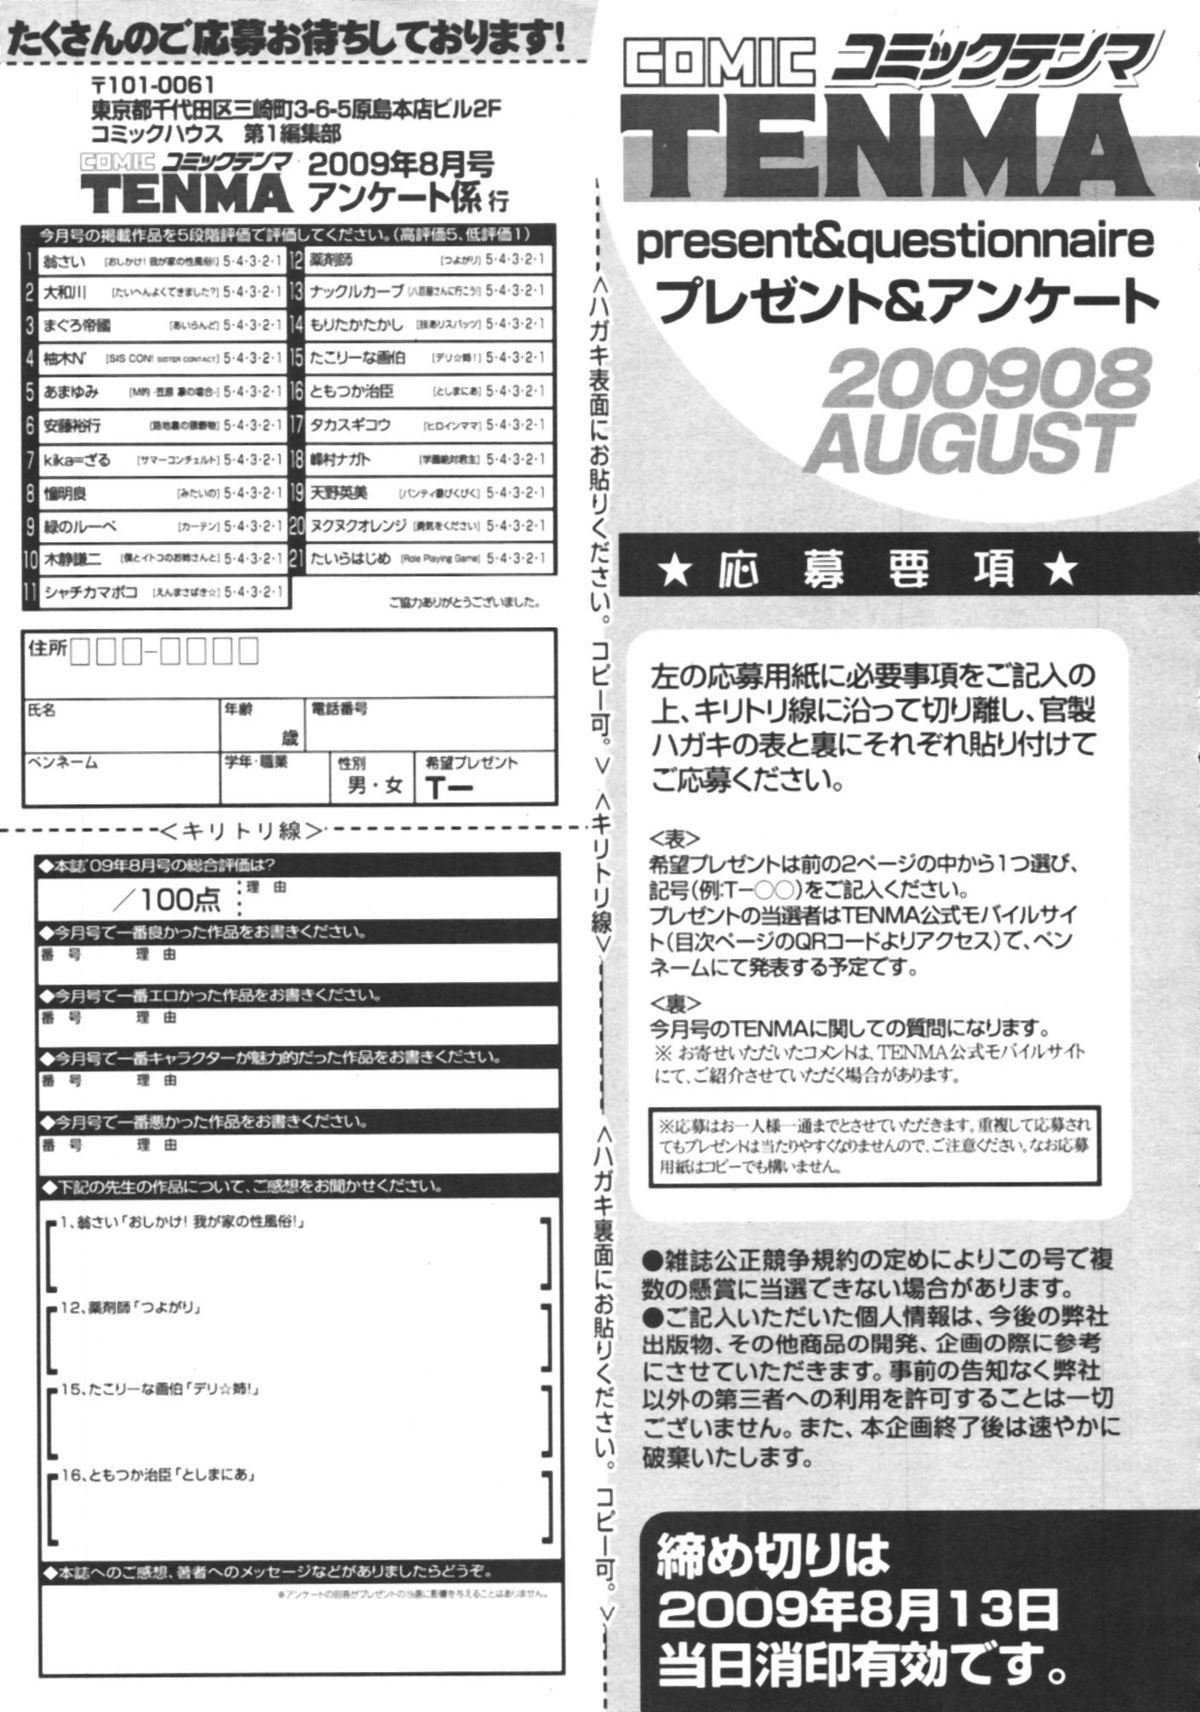 たくさんのご応募お待ちしております!
〒101-0061
東京都千代田区三崎町3-6-5原島本店ビル2F
コミックハウス 第1編集部
COMIC コミックテンマ
TENMA
2009年8月号
アンケート係 行
今月号の掲載作品を5段階評価で評価してください。(高評価5、低評価1)
1 翁さい [おしかけ! 我が家の性風俗!] 5・4・3・2・1
2 大和川 [たいへんよくできました?] 5・4・3・2・1
3 まぐろ帝國 [あいらんど] 5・4・3・2・1
4 柚木N' [SIS CON! SISTER CONTACT] 5・4・3・2・1
5 あまゆみ [M的 -笠原 凛の場合-] 5・4・3・2・1
6 安藤裕行 [路地裏の猥褻物] 5・4・3・2・1
7 kika=ざる [サマーコンチェルト] 5・4・3・2・1
8 憧明良 [みたいの] 5・4・3・2・1
9 緑のルーペ [カーテン] 5・4・3・2・1
10 木静謙二 [僕とイトコのお姉さんと] 5・4・3・2・1
11 シャチカマボコ [えんまさばき☆] 5・4・3・2・1
12 薬剤師 [つよがり] 5・4・3・2・1
13 ナックルカーブ [八百屋さんに行こう!] 5・4・3・2・1
14 もりたかたかし [技ありスパッツ] 5・4・3・2・1
15 たこりーな画伯 [デリ☆姉!] 5・4・3・2・1
16 ともつか治臣 [としまにあ] 5・4・3・2・1
17 タカスギコウ [ヒロインママ] 5・4・3・2・1
18 峰村ナガト [学園絶対君主] 5・4・3・2・1
19 天野英美 [パンティ濡びくびく] 5・4・3・2・1
20 ヌクヌクオレンジ [勇気をください] 5・4・3・2・1
21 たいらはじめ [Role Playing Game] 5・4・3・2・1
ご協力ありがとうございました。
住所 □□□-□□□□
氏名
年齢
歳
電話番号
ペンネーム
学年・職業
性別
男・女
希望プレゼント
T-
<キリトリ線>
◆本誌'09年8月号の総合評価は?
/100点
理 由
◆今月号で一番良かった作品をお書きください。
番 号 理 由
◆今月号で一番エロかった作品をお書きください。
番 号 理 由
◆今月号で一番キャラクターが魅力的だった作品をお書きください。
番 号 理 由
◆今月号で一番悪かった作品をお書きください。
番 号 理 由
◆下記の先生の作品について、ご感想をお聞かせください。
1、翁さい「おしかけ! 我が家の性風俗!」
12、薬剤師「つよがり」
15、たこりーな画伯「デリ☆姉!」
16、ともつか治臣「としまにあ」
◆本誌へのご感想、著者へのメッセージなどがありましたらどうぞ。
※アンケートの回答がプレゼントの当選に影響を与えることはありません。
<ハガキ表面にお貼りください。コピー可。>
<キリトリ線>
<ハガキ裏面にお貼りください。コピー可。>
COMIC コミックテンマ
TENMA
present&questionnaire
プレゼント&アンケート
200908
AUGUST
★応募要項★
左の応募用紙に必要事項をご記入の
上、キリトリ線に沿って切り離し、官製
ハガキの表と裏にそれぞれ貼り付けて
ご応募ください。
<表>
希望プレゼントは前の2ページの中から1つ選び、
記号(例:T-○○)をご記入ください。
プレゼントの当選者はTENMA公式モバイルサイ
ト(目次ページのQRコードよりアクセス)で、ペン
ネームにて発表する予定です。
<裏>
今月号のTENMAに関しての質問になります。
※ お寄せいただいたコメントは、TENMA公式モバイルサイト
にて、ご紹介させていただく場合があります。
※応募はお一人様一通までとさせていただきます。重複して応募され
てもプレゼントは当たりやすくなりませんので、ご注意ください。なお応募
用紙はコピーでも構いません。
●雑誌公正競争規約の定めによりこの号で複
数の懸賞に当選できない場合があります。
●ご記入いただいた個人情報は、今後の弊社
出版物、その他商品の開発、企画の際に参考
にさせていただきます。事前の告知なく弊社
以外の第三者への利用を許可することは一切
ございません。また、本企画終了後は速やかに
破棄いたします。
締め切りは
2009年8月13日
当日消印有効です。